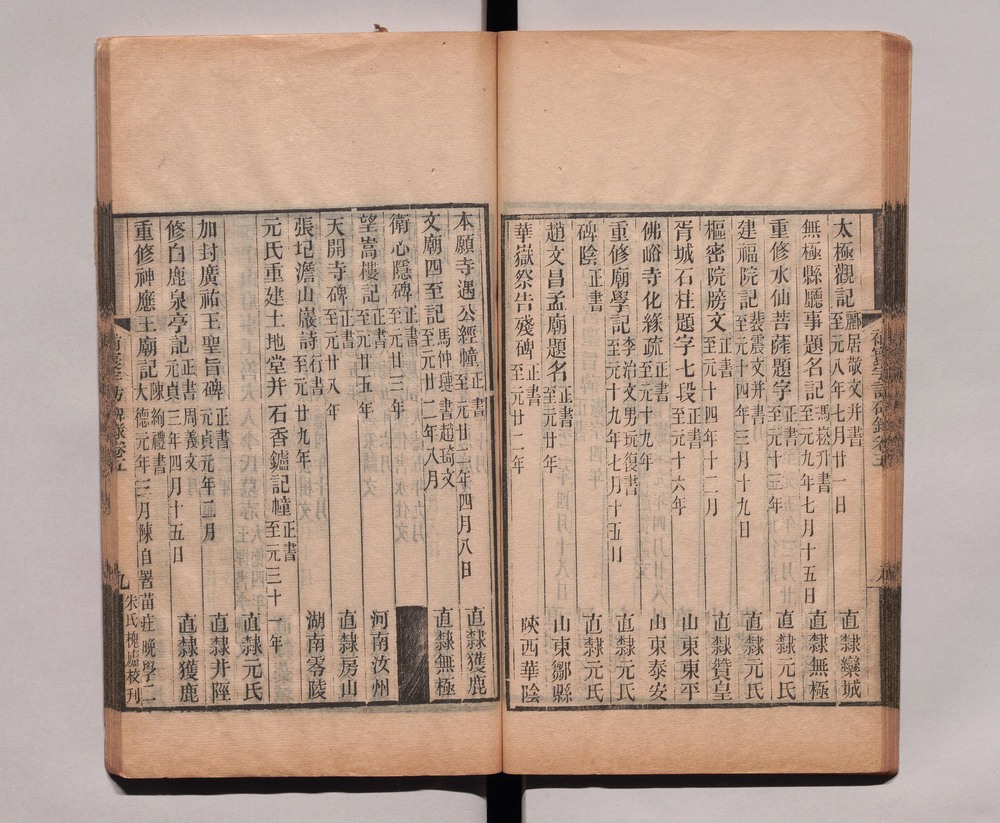 太極觀記酈居敬文并書至元八年七月廿一日 直隸欒城
無極縣廳事題名記馮崧升書至元九年七月十五日 直隸無極
重修水仙菩薩題字正書至元十三年 直隸元氏
建福院記裴震文并書至元十四年三月十九日 直隸元氏
樞密院牓文正書至元十四年十二月 直隸贊皇
胥城石柱題字七段正書至元十六年 山東東平
佛峪寺化緣疏正書至元十九年 山東泰安
重修廟學記李治文男玩復書至元十九年七月十五日 直隸元氏
碑陰正書 直隸元氏
趙文昌孟廟題名正書至元廿年 山東鄒縣
華嶽祭告殘碑正書至元廿二年 陝西華陰
本願寺遇公經幢正書至元廿二年四月八日 直隸獲鹿
文廟四至記馬仲璉書趙琦文至元廿二年八月 直隸無極
衛心隱碑正書至元廿三年
望嵩樓記正書至元廿五年 河南汝州
天開寺碑正書至元廿八年 直隸房山
張圮澹山巖詩行書至元廿九年 湖南零陵
元氏重建土地堂并石香鑪記幢正書至元三十一年 直隸元氏
加封廣祐王聖旨碑正書元貞元年二月 直隸井陘
修白鹿泉亭記正書周義文元貞三年四月十五日 直隸獲鹿
重修神應王廟記陳絢禮書大德元年三月陳自署苗莊晚學二
九 朱氏槐廬校刊